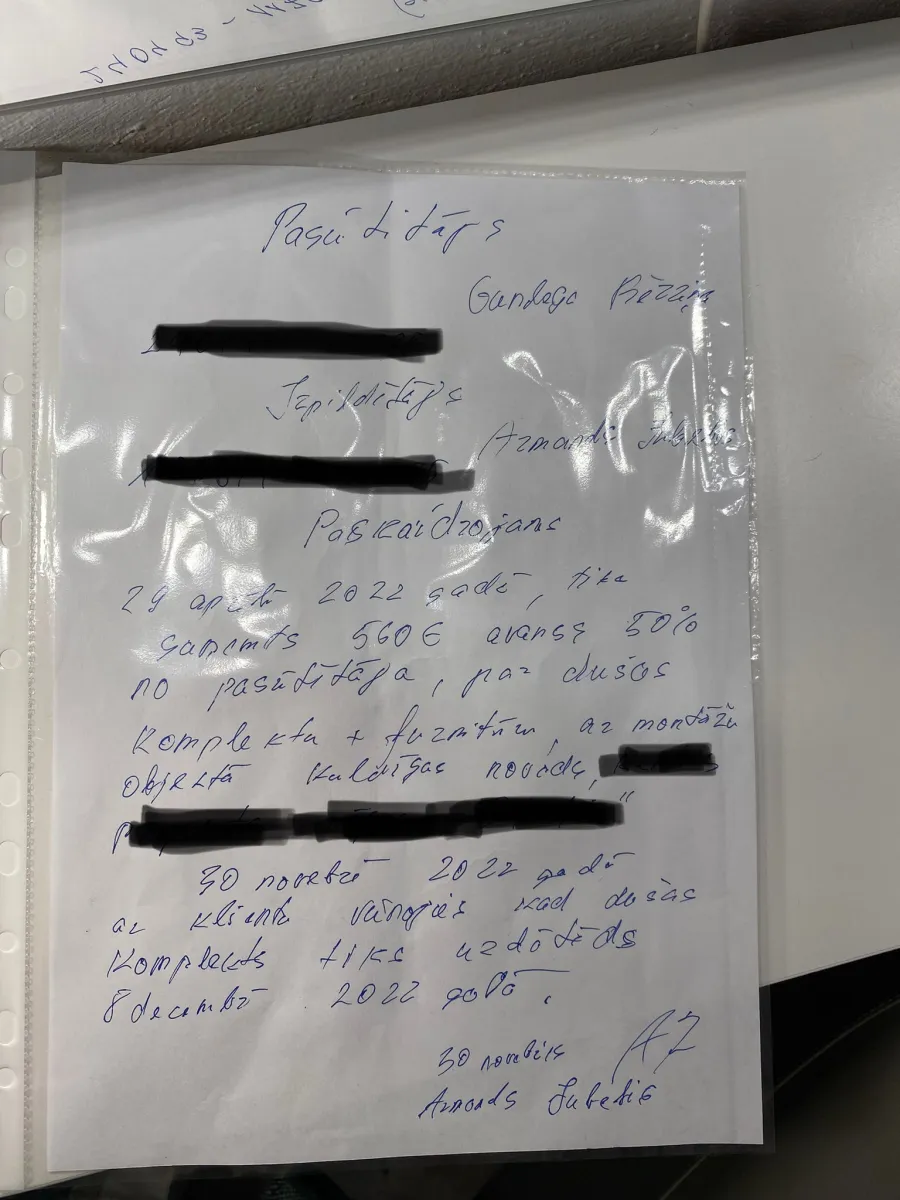 Pasūtitājs
Gundega Bērziņ
Izpildītājs
Armands
Paskaidrojams
29 aprīlī 2022 gadā, tika
saņemts 560€ avansa 50%
no pasūtītāja, par dušas
Komplektu + furnitūru, ar montāžu
objektā Kuldīgas novads,
30 novebrī 2022 gadā
ar klientu vienojies kad dušas
Komplekts tiks uzdotēds
8 decembrī 2022 gadā.
30 novebris AZ
Armands